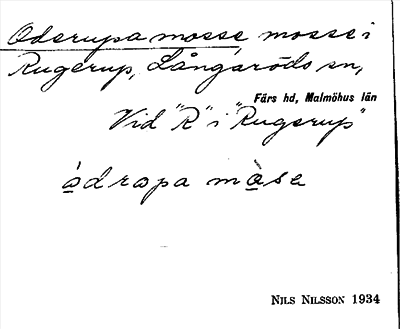 Oderupa mosse, mosse i
Rugerup, Långaröds sn,
Färs hd, Malmöhus län
Vid "R" i "Rugerup"
òdrapa mòse
NILS NILSSON 1934